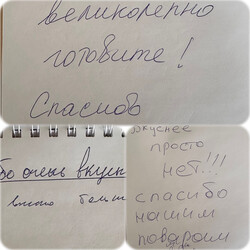 великолепно
готовите!
Спасибо
бо очень вкусн
вкуснее
просто
нет!!!
спасибо
нашим
поварам